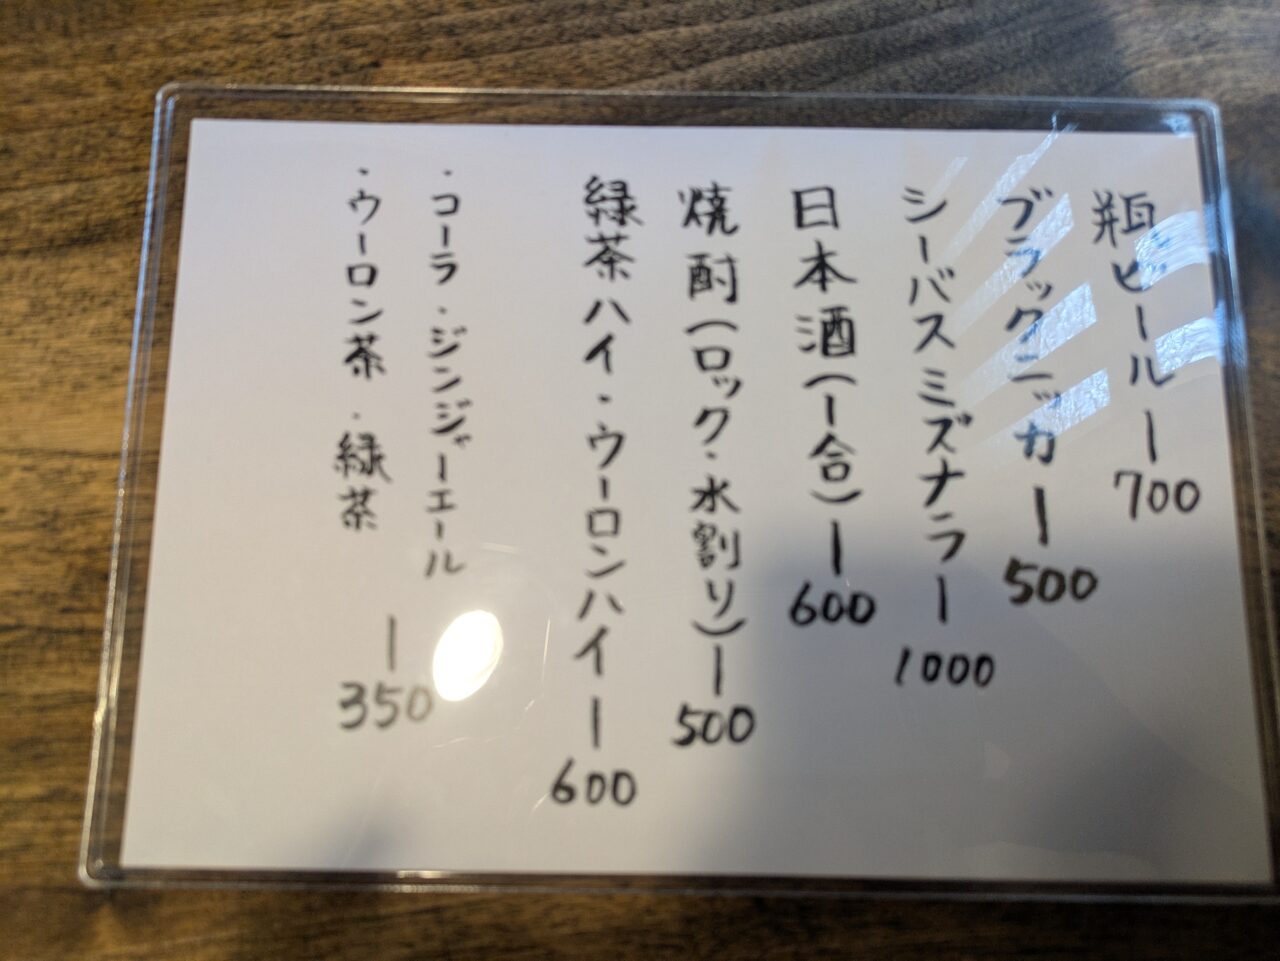 瓶ビール ー 700
ブラックニッカ ー 500
シーバスミズナラ ー 1000
日本酒(一合) ー 600
焼酎(ロック・水割り) ー 500
緑茶ハイ・ウーロンハイ ー 600
・コーラ ・ジンジャーエール
・ウーロン茶 ・緑茶 ー 350